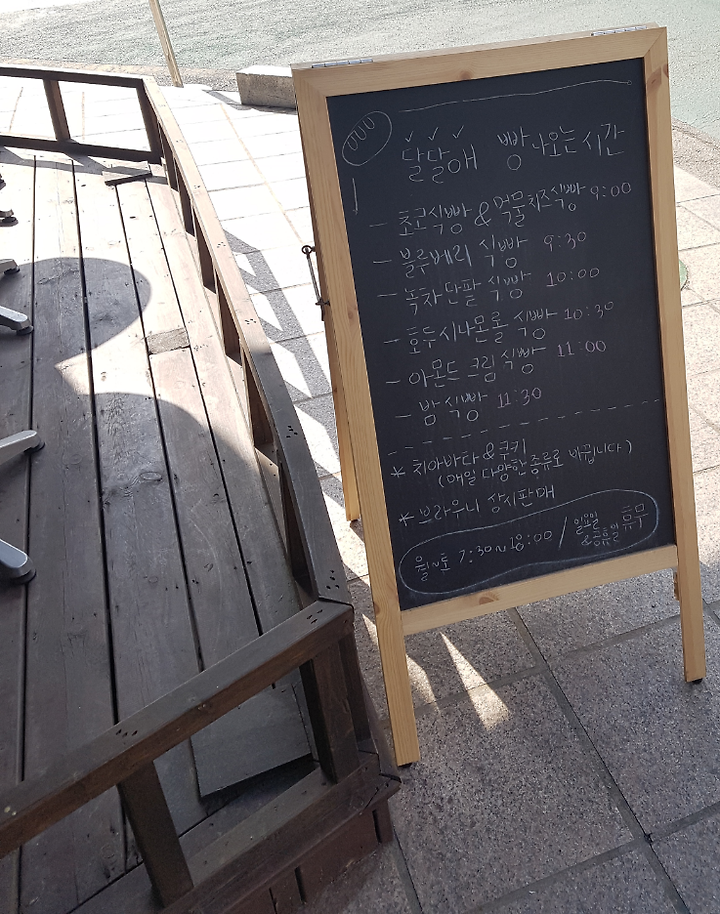 달달해 빵 나오는 시간
- 초코식빵 & 먹물치즈식빵 9:00
- 블루베리 식빵 9:30
- 녹차단팥 식빵 10:00
- 호두시나몬롤 식빵 10:30
- 아몬드크림 식빵 11:00
- 밤식빵 11:30
* 치아바타 & 쿠키
(매일 다양한 종류로 바뀝니다)
* 브라우니 상시판매
월~토 7:30~18:00 / 일요일 & 공휴일 휴무